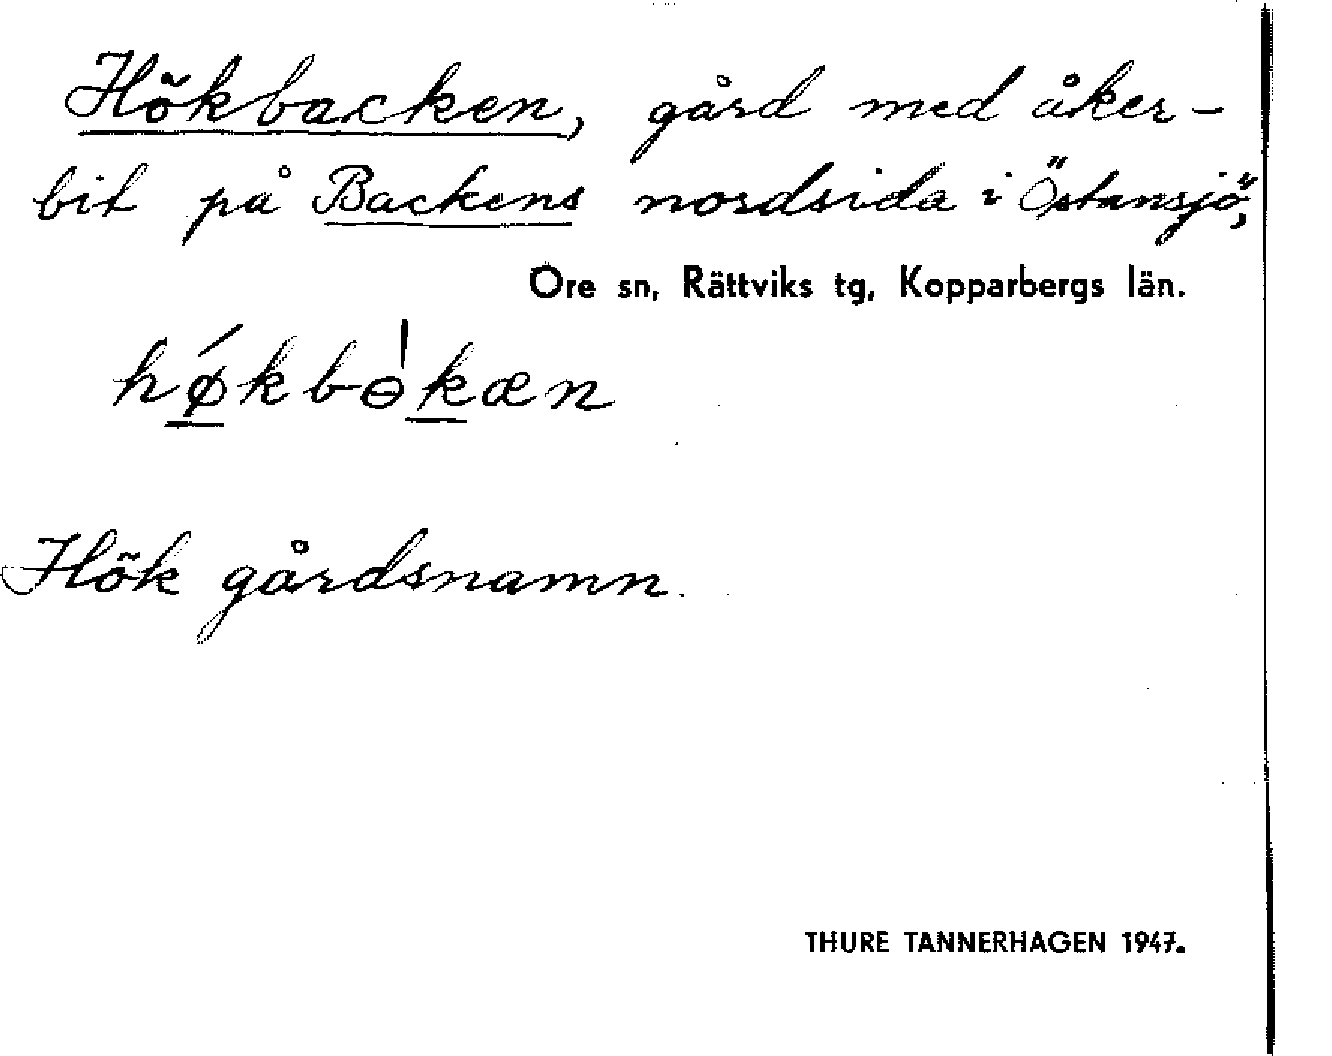 Hökbacken, gård med åker-
bit på Backens nordsida i Östansjö,
Ore sn, Rättviks tg, Kopparbergs län.
hǿkbɵ̀kæn
Hök gårdsnamn.
THURE TANNERHAGEN 1947.